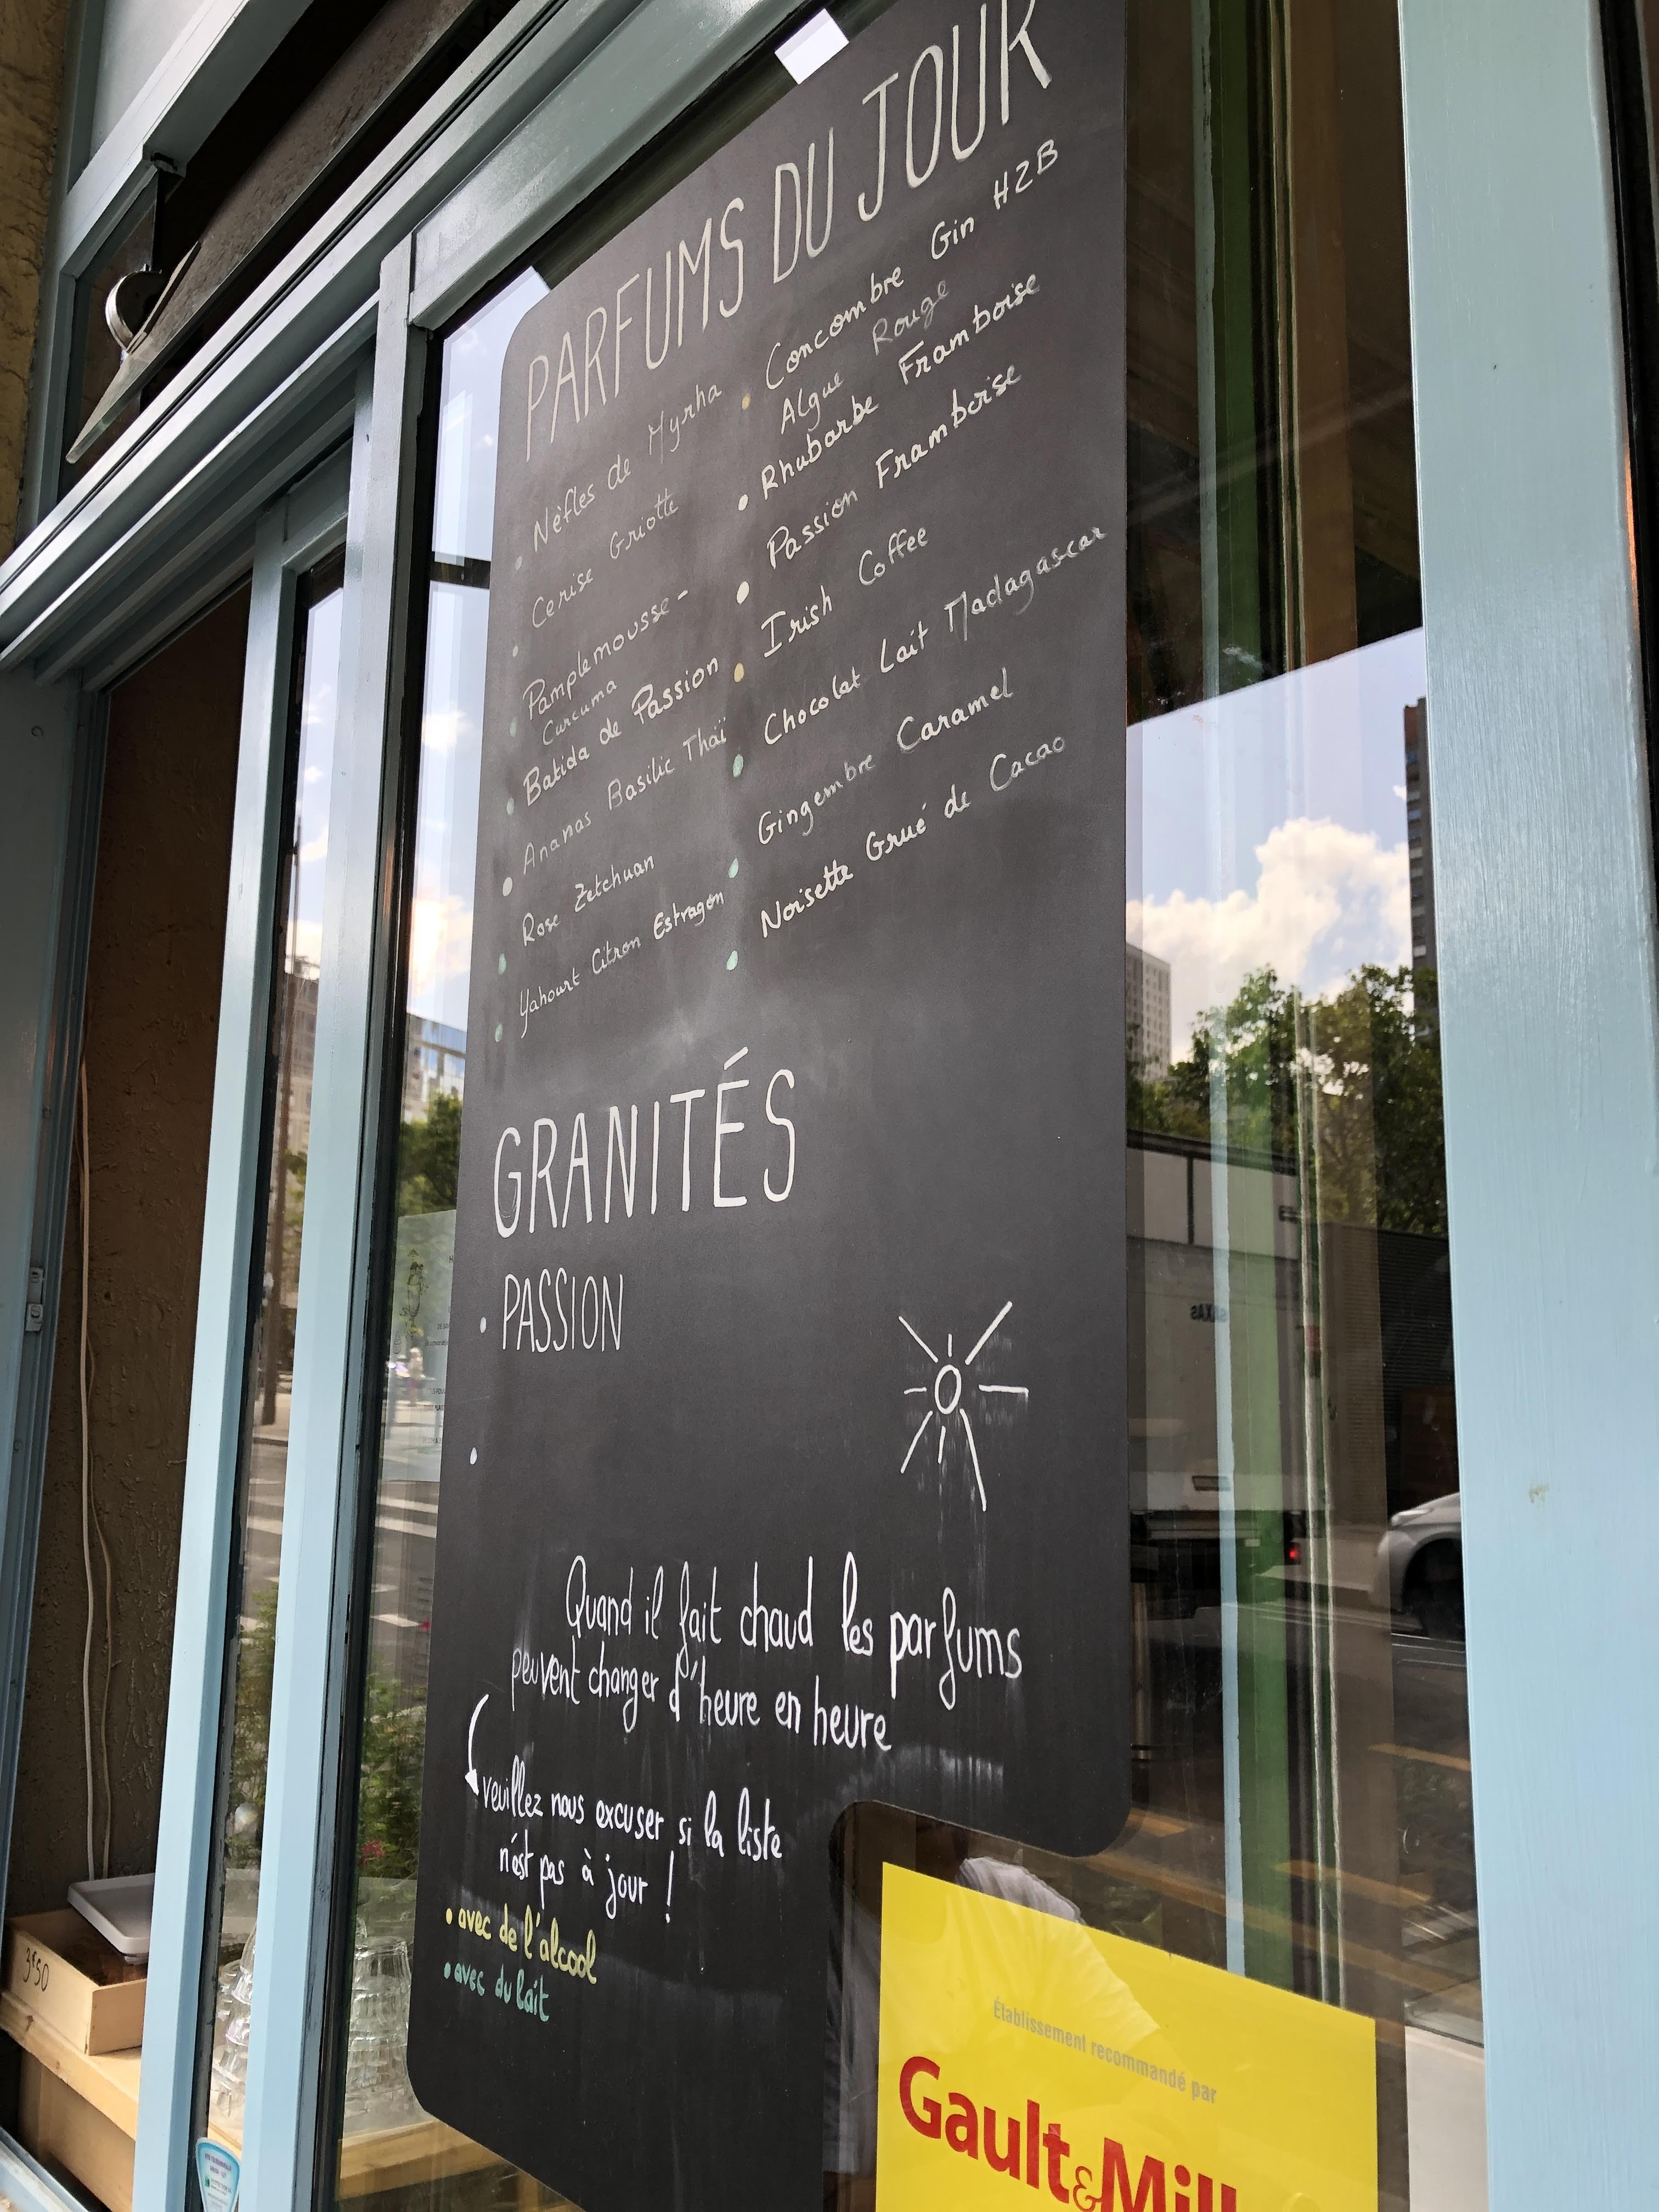 PARFUMS DU JOUR
Nèfles de Myrha
Cerise Griotte
Pamplemousse-
Curcuma
Batida de Passion
Ananas Basilic Thaï
Rose Zetchuan
Yahourt Citron Estragon
Concombre Gin H2B
Algue Rouge
Rhubarbe Framboise
Passion Framboise
Irish Coffee
Chocolat Lait Madagascar
Gingembre Caramel
Noisette Grué de Cacao
GRANITÉS
• PASSION
•
Quand il fait chaud les parfums
peuvent changer d'heure en heure
veuillez nous excuser si la liste
n'est pas à jour !
• avec de l'alcool
• avec du lait
3€50
Établissement recommandé par
Gault&Mill